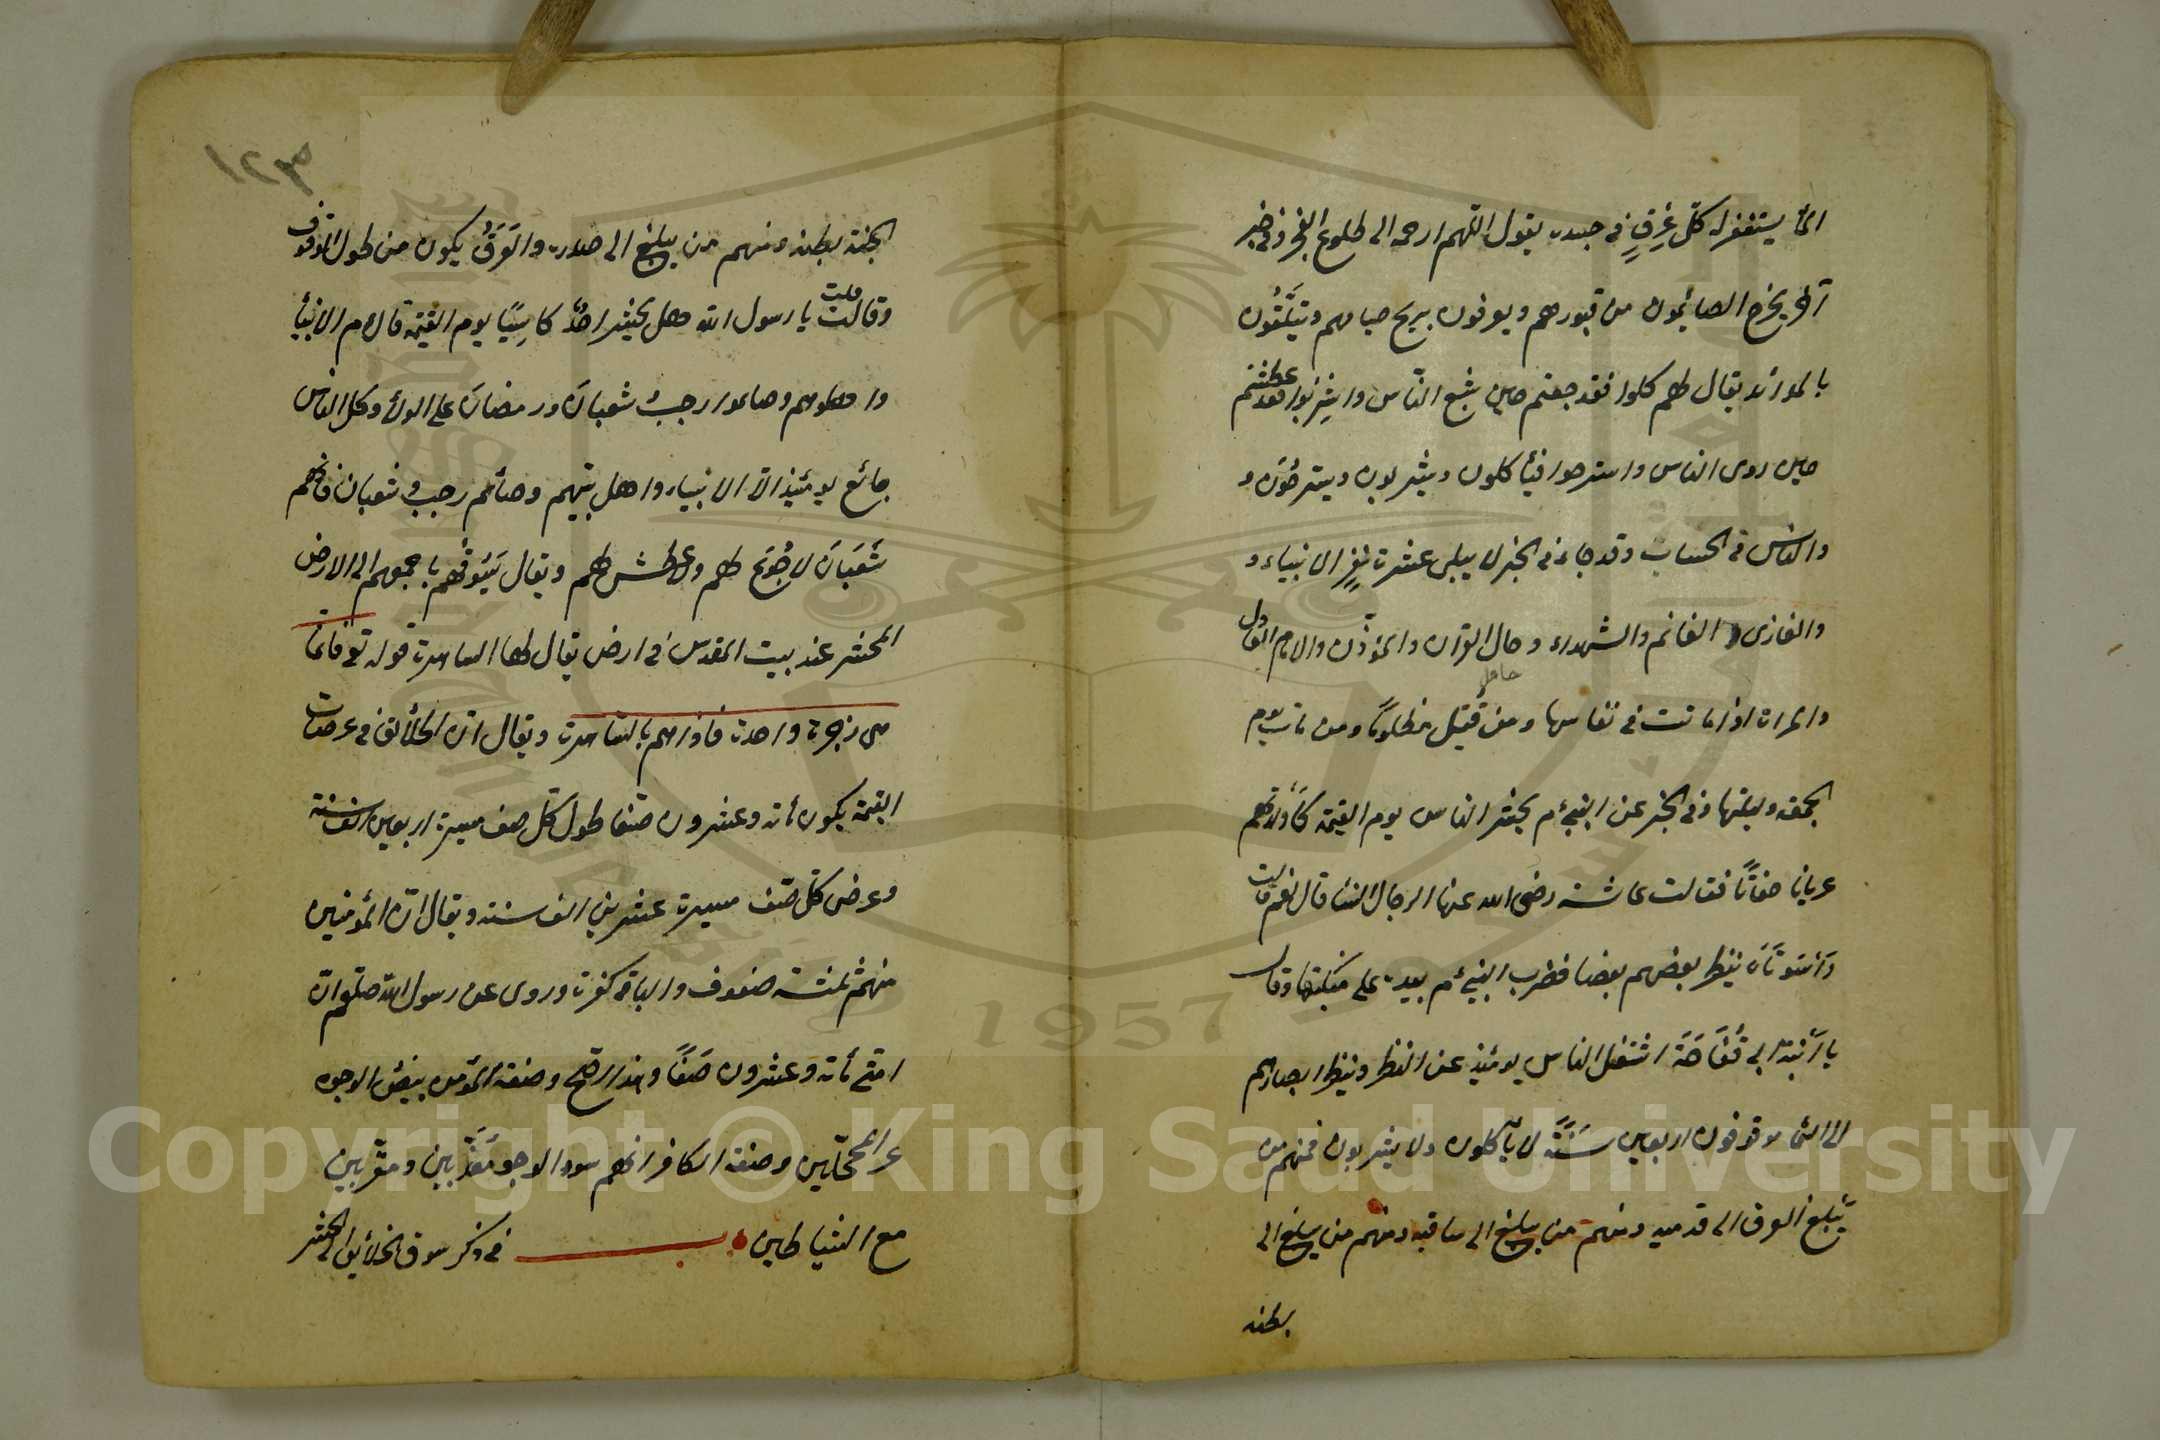 الى يستغفر له كل عرق في جسده يقول اللهم ارحمه الى طلوع الفجر وفي خبر
آخر يخرج الصائمون من قبورهم ويعرفون بريح صيامهم ويتلقون
بالموائد يقال لهم كلوا فقد جعتم حين شبع الناس واشربوا فقد عطشتم
حين روى الناس واسترحوا فيأكلون ويشربون ويسترحون و
والناس في الحساب وقد جاء في الخبر لا يبلى عشرة نفر الانبياء و
والغازى و الغانم والشهداء وحال القرآن والمؤذن والامام العادل
حامل
والمراة اذا ماتت في نفاسها ومن قتيل مظلوما ومن مات يوم
الجمعة وليلتها وفي الخبر عن النبي م يحشر الناس يوم القيمة كما ولدتهم
عريانا حفاتا فقالت عائشة رضى الله عنها الرجال النسا قال نعم قالت
واسوتاه ينظر بعضهم بعضا فضرب النبي م بيده على منكبها وقال
يا ابنة ابى قحافة اشتغل الناس يومئذ عن النظر وينظر ابصارهم
الى السما موقوفون اربعين سنة لا يأكلون ولا يشربون فمنهم من
يبلغ العرق الى قدميه ومنهم من يبلغ الى ساقيه ومنهم من يبلغ الى
بطنه
١٢٣
الجنة بطنه ومنهم من يبلغ الى صدره والعرق يكون من طول الوقوف
وقالت قلت يا رسول الله هل يحشر احد كاسيا يوم القيمة قال م الانبيأ
واهلوهم وصاموا رجب شعبان ورمضان على الولأ وكل الناس
جائع يومئذ الا الانبياء واهل بيتهم وصائم رجب و شعبان فانهم
شعبان لا جوع لهم ولا عطش لهم ويقال يسوقهم باجمعهم الى الارض
المحشر عند بيت المقدس في ارض يقال لها الساهرة قوله تع فانما
هى زجرة واحدة فاذا هم بالساهرة ويقال ان الخلأئق في عرصات
القيمة يكون مأئة وعشرون صفا طول كل صف مسيرة اربعين الف سنة
وعرض كل صف مسيرة عشرين الف سنة ويقال ان المؤمنين
منهم ثلثة صفوف والباقى كفرة وروى عن رسول الله صلعم ان
امتى مأئة وعشرون صفا وهذا اصح وصفة المؤمن بيض الوجوه
غر المحجلين وصفة الكافر انهم سود الوجوه معذبين ومقربين
مع الشياطين بـــــ في ذكر سوق الخلأيق الى المحشر